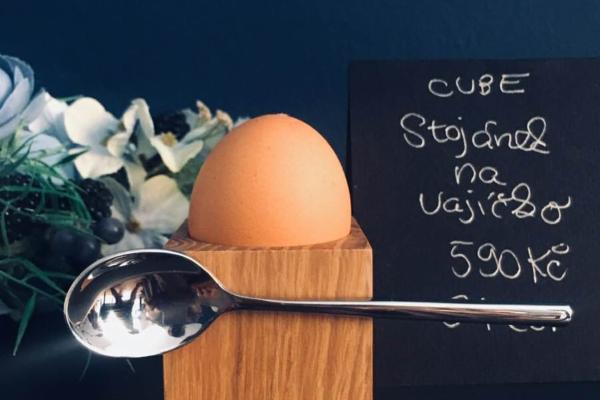 CUBE
Stojánek
na
vajíčko
590 Kč